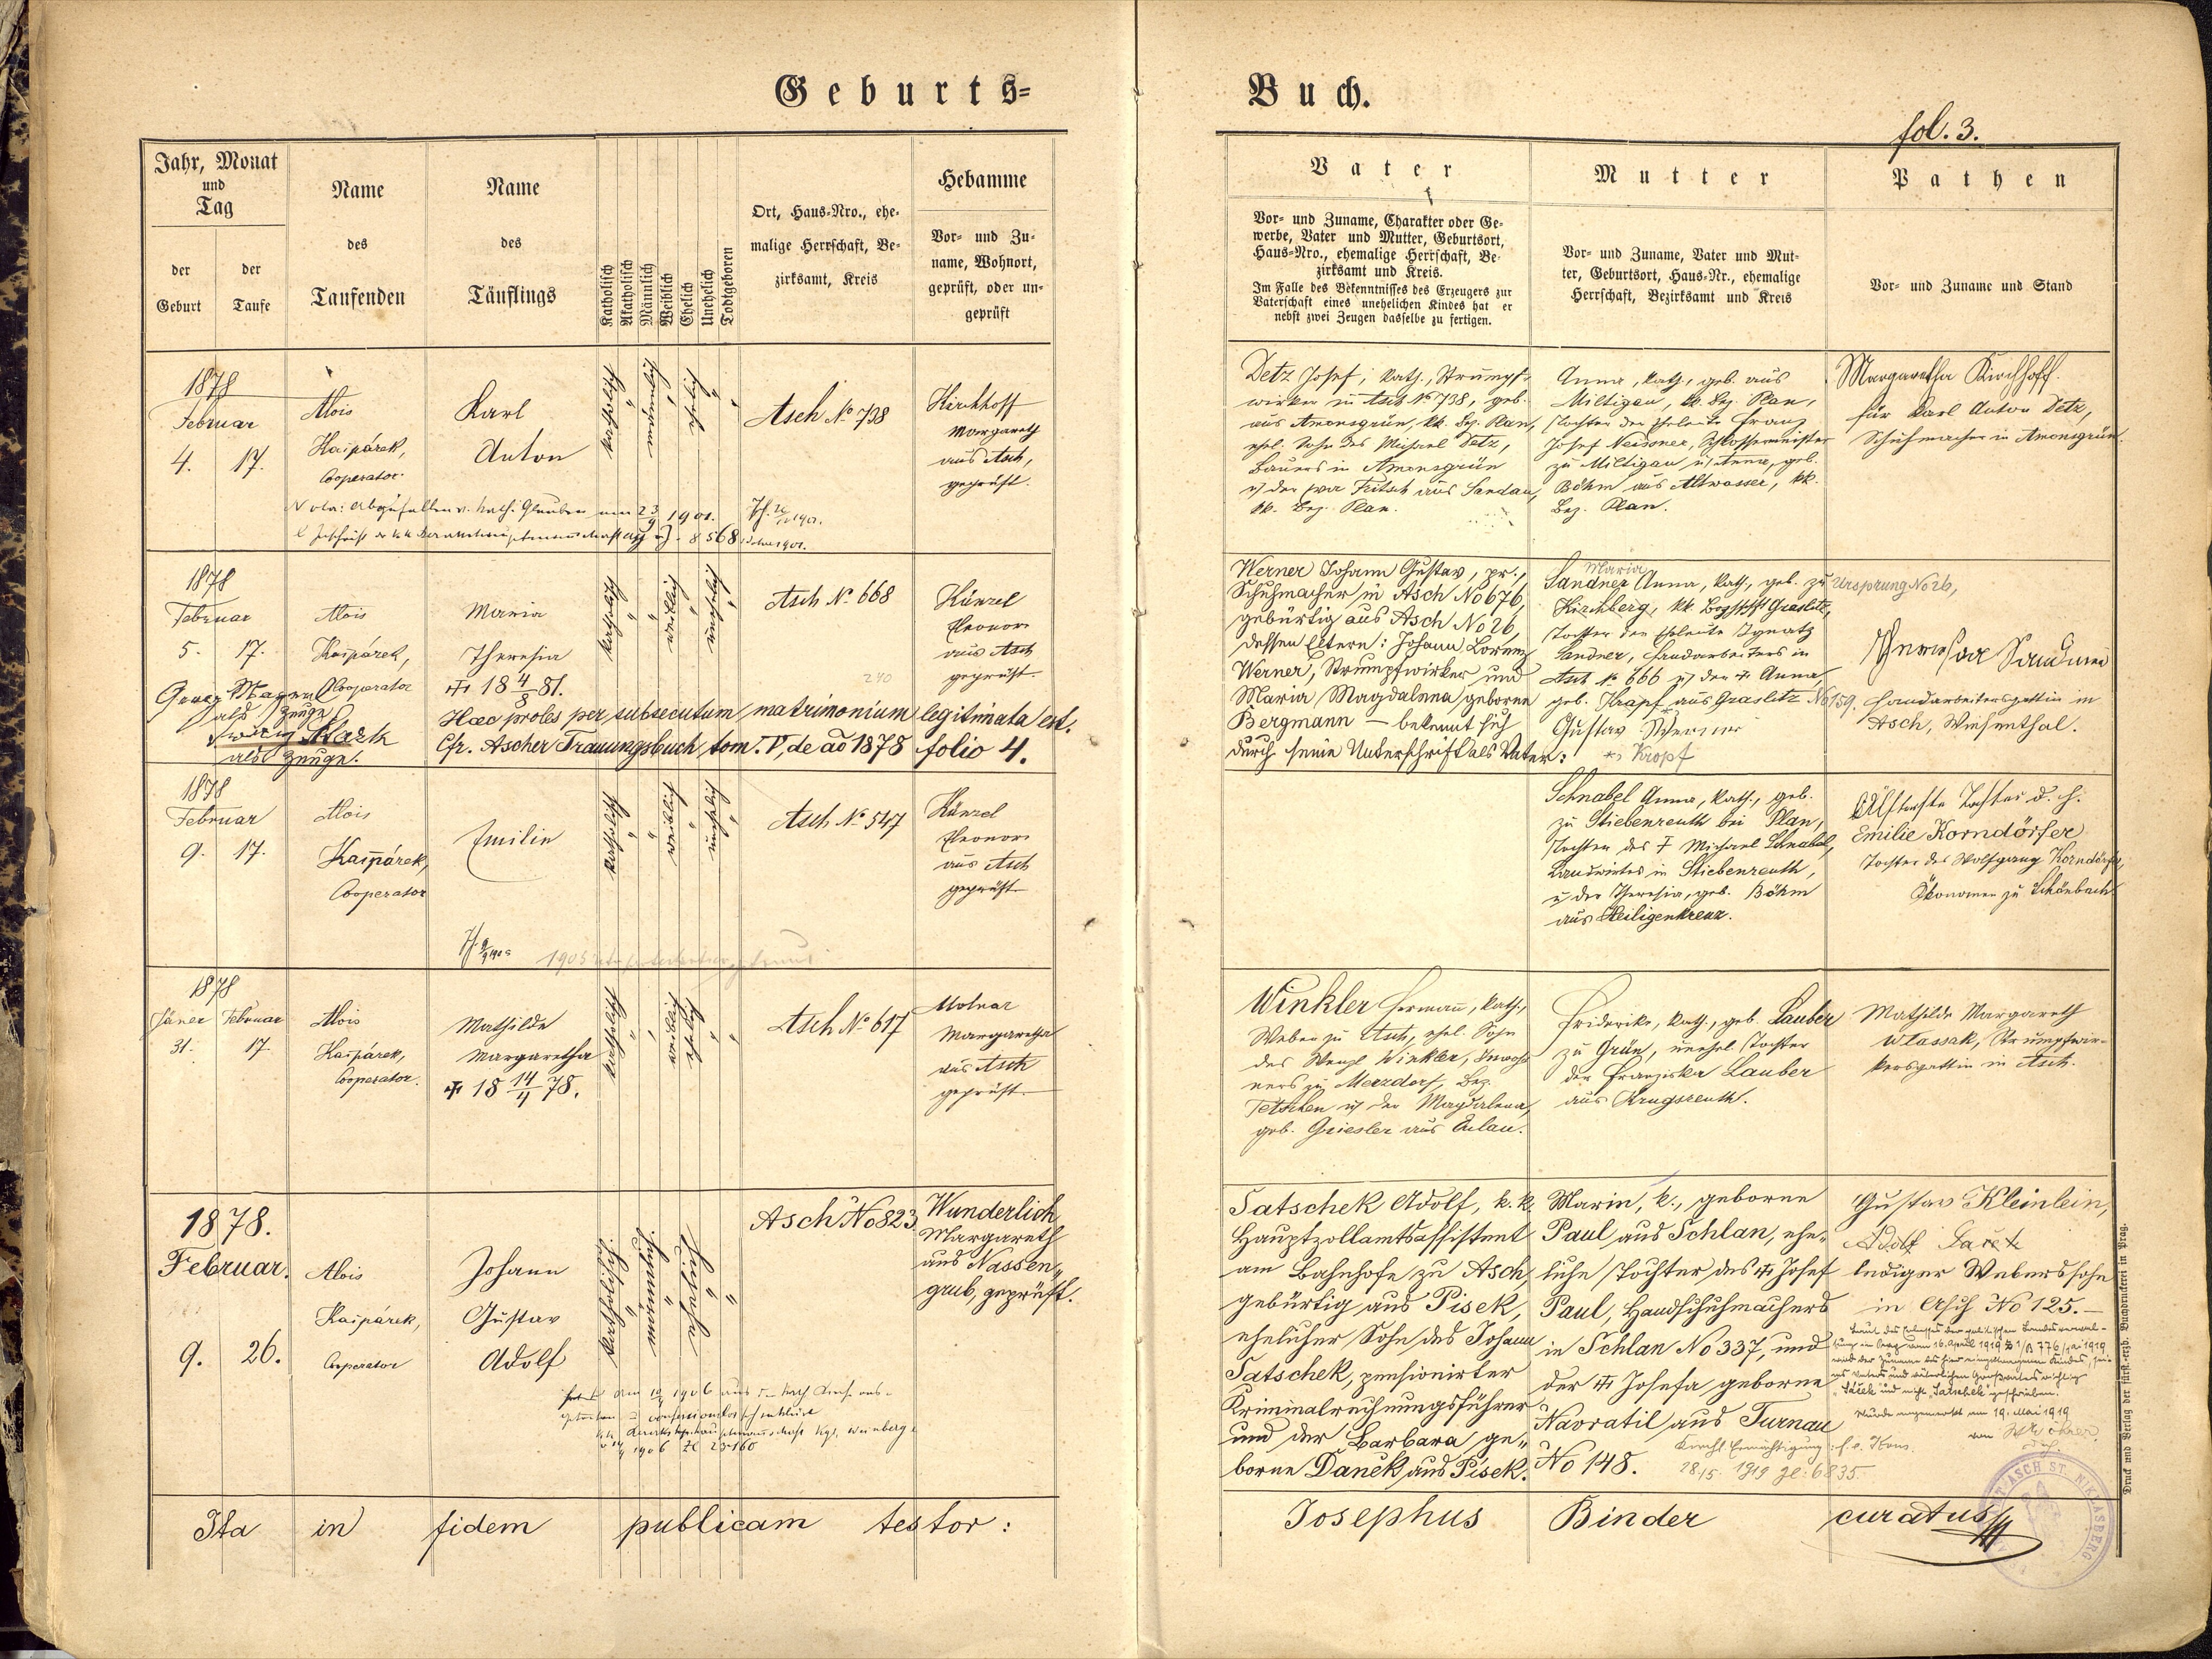 Geburts=
Buch.
fol. 3.
Jahr, Monat
und
Tag
der
Geburt
der
Taufe
Name
des
Taufenden
Name
des
Täuflings
Katholisch
Akatholisch
Männlich
Weiblich
Ehelich
Unehelich
Todtgeboren
Ort, Haus=Nro., ehe=
malige Herrschaft, Be=
zirksamt, Kreis
Hebamme
Vor= und Zu=
name, Wohnort,
geprüft, oder un=
geprüft
Vater
Vor= und Zuname, Charakter oder Ge=
werbe, Vater und Mutter, Geburtsort,
Haus=Nro., ehemalige Herrschaft, Be=
zirksamt und Kreis.
Im Falle des Bekenntnisses des Erzeugers zur
Vaterschaft eines unehelichen Kindes hat er
nebst zwei Zeugen dasselbe zu fertigen.
Mutter
Vor= und Zuname, Vater und Mut=
ter, Geburtsort, Haus=Nr., ehemalige
Herrschaft, Bezirksamt und Kreis
Pathen
Vor= und Zuname und Stand
1878
Februar
4. 17.
Alois
Kaspárek,
Cooperator.
Karl
Anton
katholisch
männlich
ehelich
Asch No 738
Kirchhoff
Margareth
aus Asch,
geprüft.
Nota: Abgefallen v. kath. Glauben am 23/9 1901.
8568
Detz Josef, kath., Strumpf=
wirker in Asch No 738, geb.
aus Amonsgrün, kk. Bez. Plan,
ehel. Sohn des Michael Detz,
Bauers in Amonsgrün
u der Eva Fritsch aus Sandau,
kk. Bez. Plan.
Anna, kath., geb. aus
Miltigau, kk. Bez. Plan,
Tochter der Eheleute Franz
Josef Meissner, Schlossermeister
zu Miltigau u Anna, geb.
Böhm aus Altwasser, kk.
Bez. Plan.
Margaretha Kirchhoff.
für Karl Anton Detz,
Schuhmacher in Amonsgrün.
1878
Februar
5. 17.
Alois
Kaspárek,
Cooperator
Maria
Theresia
18 4/8 81.
katholisch
weiblich
unehelich
Asch No 668
Künzel
Eleonore
aus Asch
geprüft.
240
Georg
als Zeuge
als Zeuge.
Haec proles per subsecutum matrimonium legitimata est.
Cfr. Ascher Trauungsbuch tom. V, de ao 1878 folio 4.
Werner Johann Gustav, pr.,
Schuhmacher in Asch No 676,
gebürtig aus Asch No 26,
dessen Eltern: Johann Lorenz
Werner, Strumpfwirker und
Maria Magdalena geborne
Bergmann — bekennt sich
durch seine Unterschrift als Vater:
Maria
Sandner Anna, kath., geb. zu Ursprung No 26,
Kirchberg, kk. Bezhptsft Graslitz,
Tochter der Eheleute Ignatz
Sandner, Handarbeiters in
Asch No 666 u der Anna,
geb. Krapf aus Graslitz No 159.
Gustav Werner
*) Kropf
Theresia Sandner
Handarbeitersgattin in
Asch, Wiesenthal.
1878
Februar
9. 17.
Alois
Kaspárek,
Cooperator
Emilie
katholisch
weiblich
unehelich
Asch No 547
Künzel
Eleonore
aus Asch
geprüft
Schnabel Anna, kath., geb.
zu Stiebenreuth bei Plan,
Tochter des † Michael Schnabel,
Landwirtes in Stiebenreuth,
u der Theresia, geb. Böhm
aus Heiligenkreuz.
Emilie Korndörfer
Tochter des Wolfgang Korndörfer,
Ökonomen zu Schönbach
1878
Jäner Februar
31. 17
Alois
Kaspárek,
Cooperator.
Mathilde
Margaretha
18 14/4 78.
katholisch
weiblich
ehelich
Asch No 617
Molnar
Margaretha
aus Asch
geprüft.
Winkler Hermann, kath.,
Weber zu Asch, ehel. Sohn
des Wenzl Winkler, Inwoh
ners zu Merzdorf, Bez.
Tetschen u der Magdalena,
geb. Griesler aus Eulau.
Friderike, kath., geb. Lauber
zu Grün, unehel. Tochter
der Franziska Lauber
aus Krugsreuth.
Mathilde Margareth
Wlassak, Strumpfwir=
kersgattin in Asch.
1878.
Februar.
9. 26.
Alois
Kaspárek,
Cooperator
Johann
Gustav
Adolf
katholisch
männlich
ehelich
Asch No 823.
Wunderlich
Margareth
aus Nassen=
grub, geprüft.
Satschek Adolf, k.k.
Hauptzollamtsassistent
am Bahnhofe zu Asch,
gebürtig aus Pisek,
ehelicher Sohn des Johann
Satschek, pensionirter
Kriminalrechnungsführer
und der Barbara ge=
borne Daněk aus Pisek.
Marin, k., geborne
Paul aus Schlan, ehe=
liche Tochter des Josef
Paul, Handschuhmachers
in Schlan No 337, und
der Josefa geborne
Navratil aus Turnau
No 148.
Gustav Kleinlein,
lediger Webers sohn
in Asch No 125.—
wurde angemerkt am 19. Mai 1919
28/5 1919 zl: 6835.
Ita in fidem publicam testor:
Josephus Binder curatus
Druck und Verlag der fürst.=erzb. Buchdruckerei in Prag.